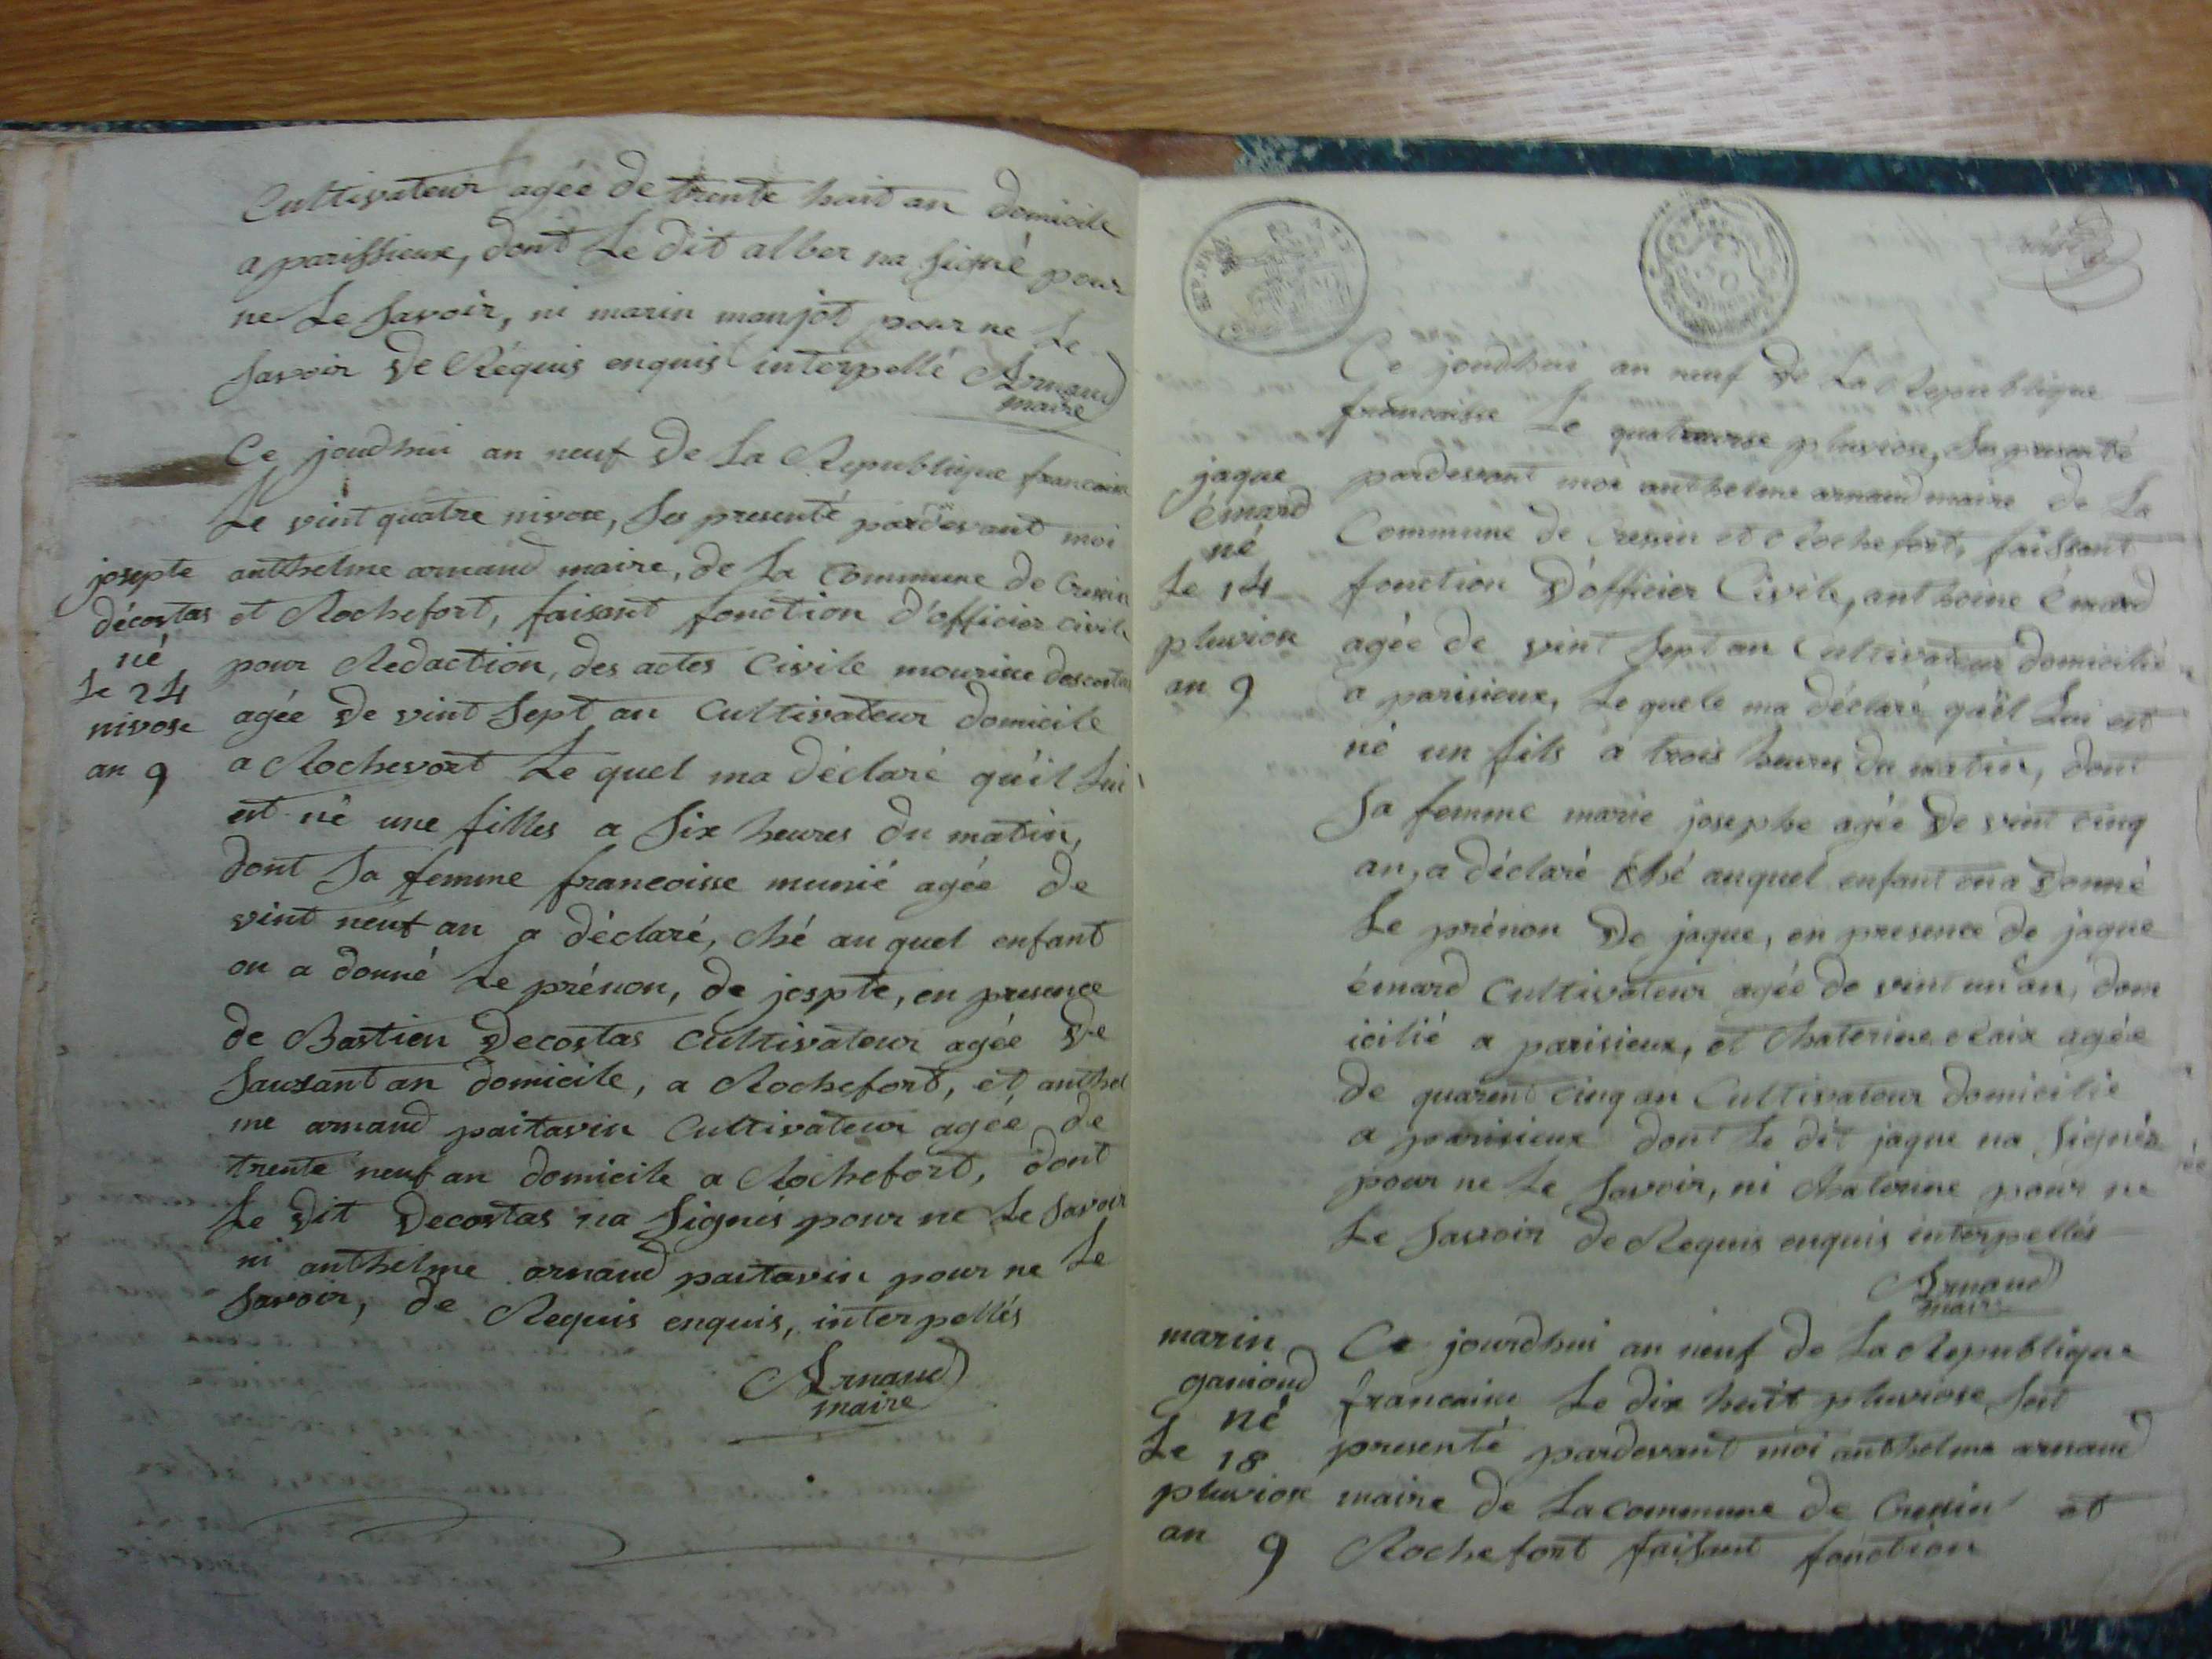 Cultivateur agée de trente huit an domicile
a parissieux, dont Le dit alber na signé pour
ne Le savoir, ni marin monjot pour ne Le
savoir de Réquis enquis interpellé Arnaud
maire
Ce joudhui an neuf de La Republique francoise
Le vint quatre nivose, ses presenté pardevant moi
josepte
décostas
né
Le 24
nivose
an 9
anthelme arnaud maire, de La Commune de Cressin
et Rochefort, faisant fonction d'officier civile
pour Redaction, des actes Civile mourisse descostas
agée de vint sept an Cultivateur domicile
a Rochevort Le quel ma déclaré qu'il Lui
est né une filles a six heures du matin,
dont sa femme francoisse munié agée de
vint neuf an a déclaré, ché au quel enfant
on a donné Le prénon, de jospte, en presence
de Bastien Decostas Cultivateur agée de
sausant an domicile, a Rochefort, et anthel
me arnaud paitavin Cultivateur agée de
trente neuf an domicile a Rochefort, dont
Le dit Decostas na signés pour ne Le savoir
ni anthelme arnaud paitavin pour ne Le
savoir, de Requis enquis, interpellés
Arnaud
maire
Ce joudhui an neuf de La Republique
francoisse Le quatorse pluviose, ses presenté
jaque
émard
né
Le 14
pluviose
an 9
pardevant moi anthelme arnaud maire de La
Commune de Cressin et Rochefort, faissant
fonction d'officier Civile, anthoine émard
agée de vint sept an Cultivateur domicilié
a parisieux, Le quele ma déclaré qu'el Lui est
né un fils a trois heures du matin, dont
sa femme marie josephe agée de vint cinq
an, a déclaré ché auquel enfant on a donné
Le prénon de jaque, en presence de jaque
émard Cultivateur agée de vint un an, dom
icilié a parisieux, et Chaterine agée
de quarent cinq an Cultivateur domicilié
a parisieux dont Le dit jaque na signés
pour ne Le savoir, ni Chaterine pour ne
Le savoir de Requis enquis interpellés
Arnaud
maire
marin
ganioud
né
Le 18
pluviose
an 9
Ce jourdhui an neuf de La Republique
francaise Le dix huit pluviose, sest
presenté pardevant moi anthelme arnaud
maire de La commune de Cressin et
Rochefort faisant fonction